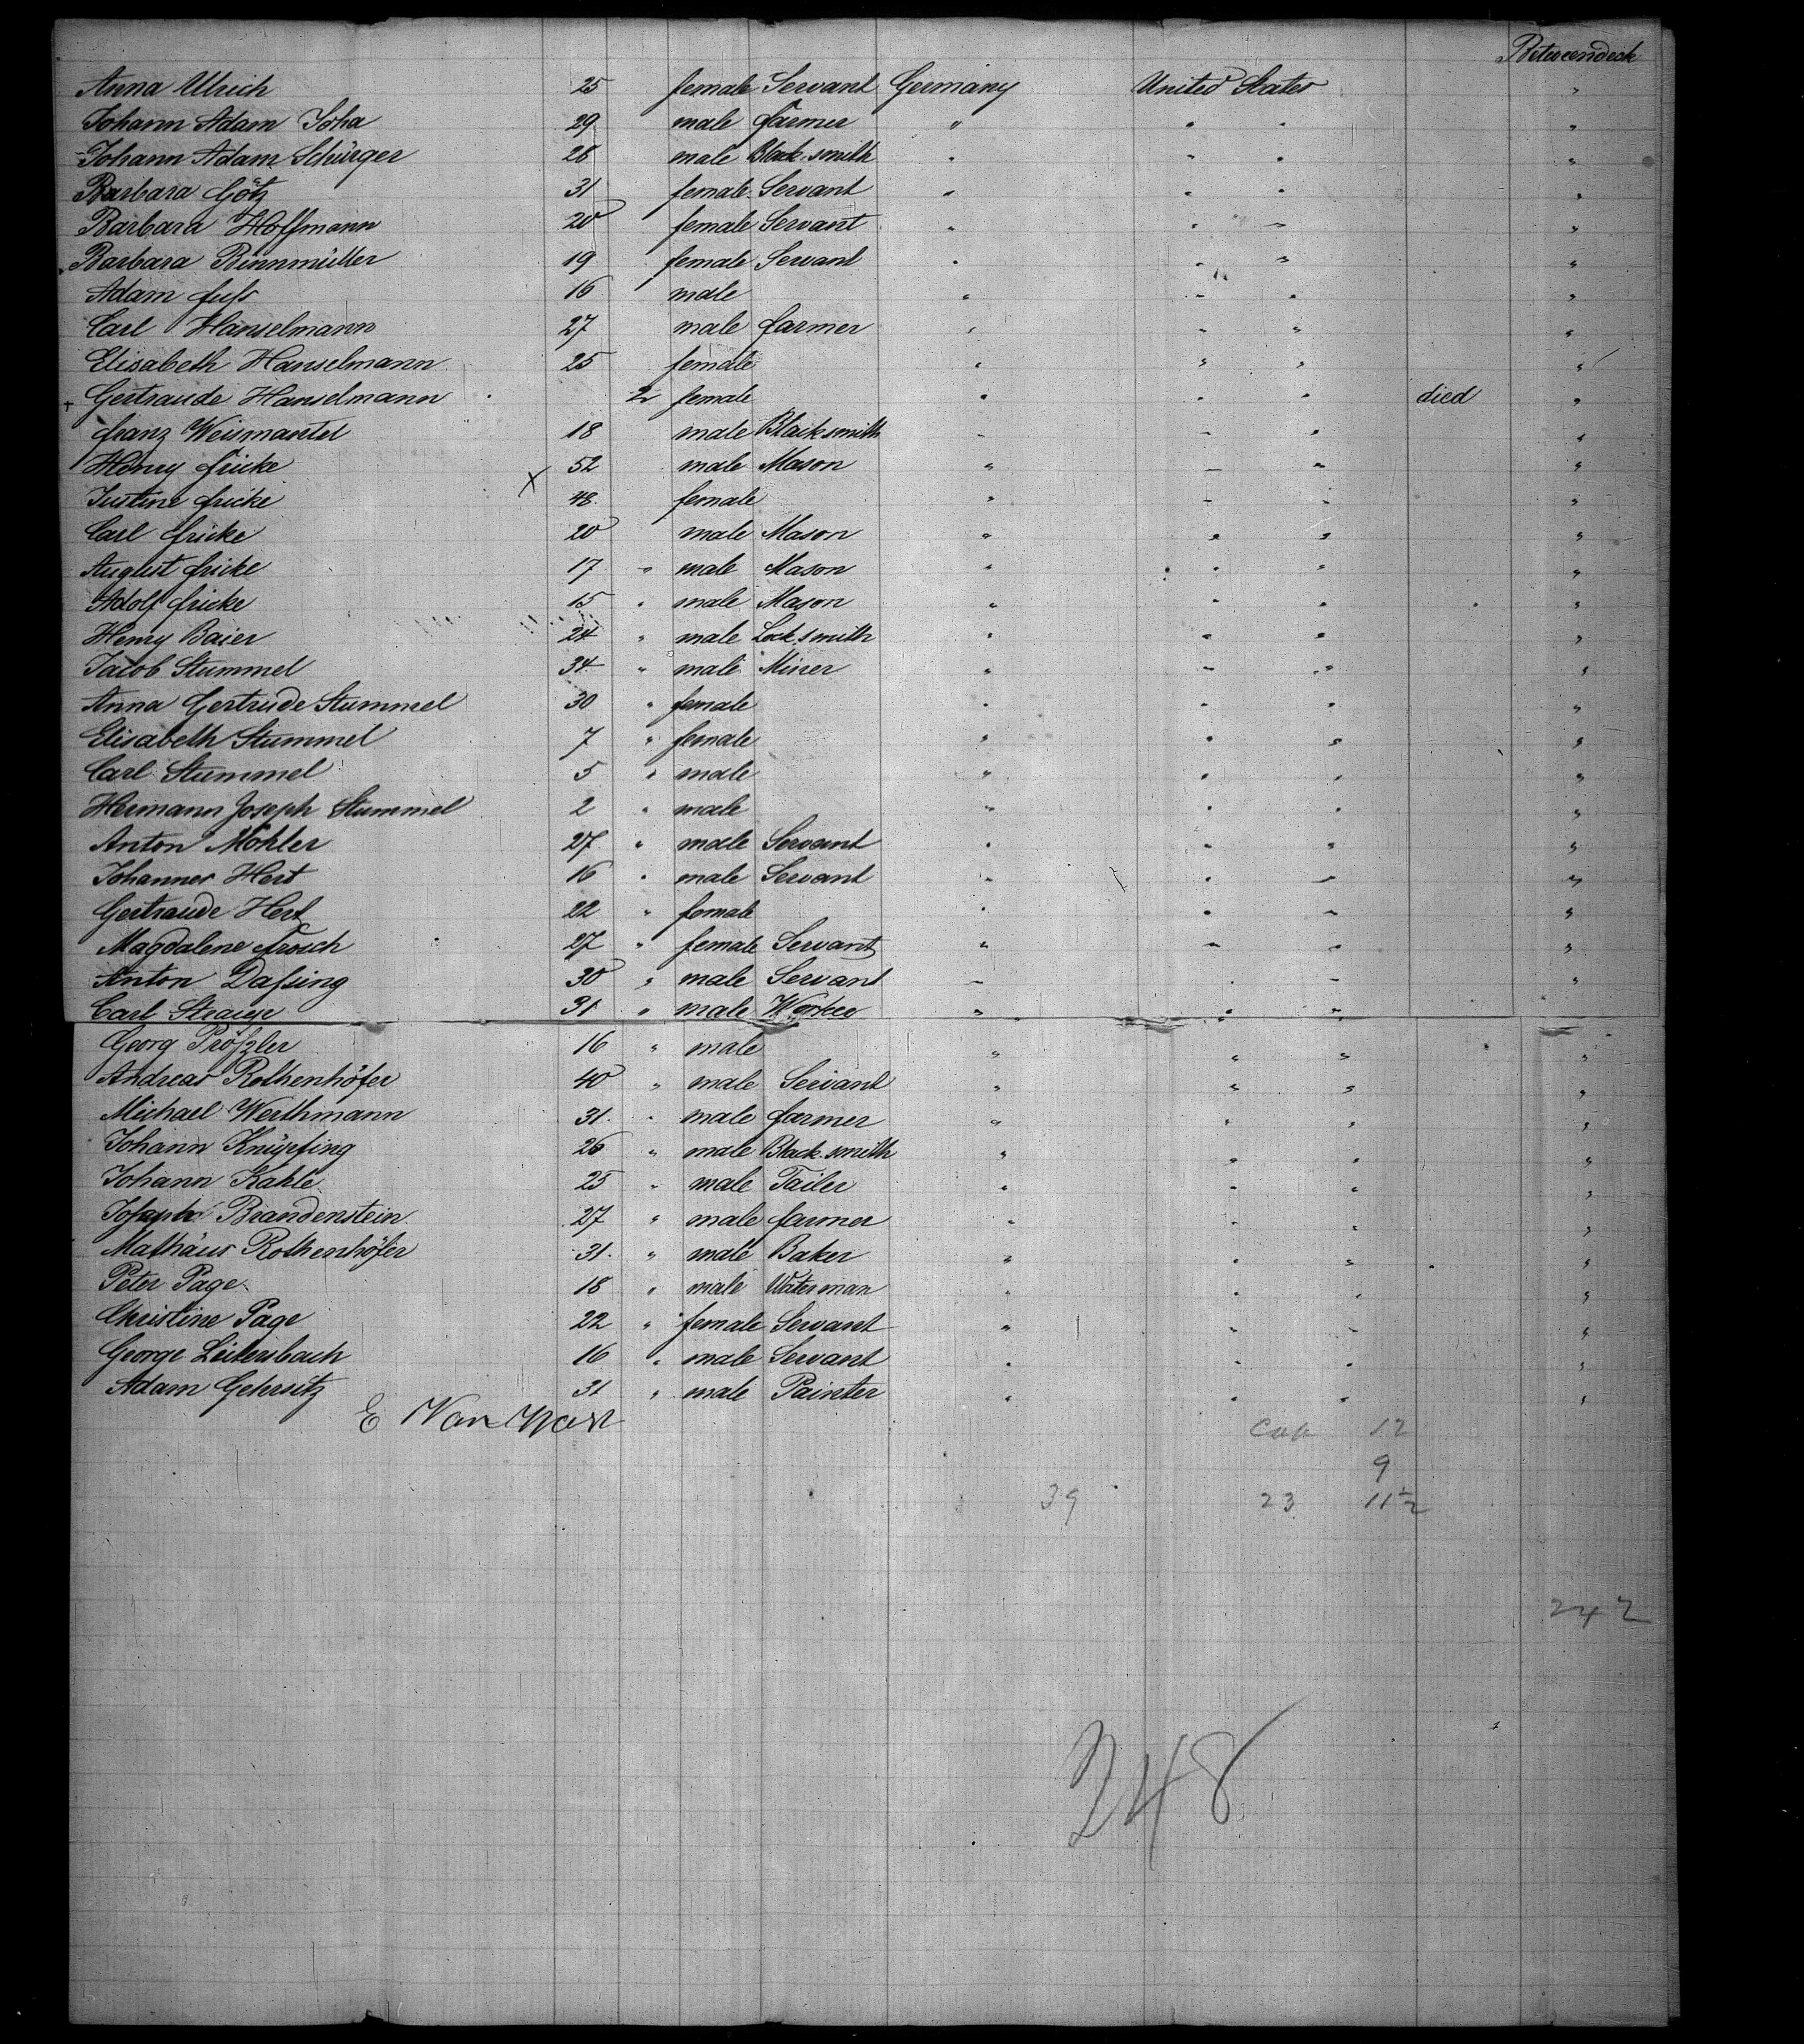 Betweendeck
Anna Ullrich 25 female Servant Germany United States "
Johann Adam Joha 29 male farmer " " " "
Johann Adam Schürger 28 male Black-smith " " " "
Barbara Götz 31 female Servant " " " "
Barbara Hoffmann 20 female Servant " " " "
Barbara Binnmüller 19 female Servant " " " "
Adam fuß 16 male " " " "
Carl Hanselmann 27 male farmer " " " "
Elisabeth Hanselmann 25 female " " " "
+ Gertraude Hanselmann 2 female " " " died "
franz Weismantel 18 male Blacksmith " " " "
Henry fricke x 52 male Mason " " " "
Justine fricke 48 female " " " "
Carl fricke 20 male Mason " " " "
August fricke 17 " male Mason " " " "
Adolf fricke 15 " male Mason " " " "
Henry Baier 24 " male Lock smith " " " "
Jacob Stummel 34 " male Miner " " " "
Anna Gertrude Stummel 30 " female " " " "
Elisabeth Stummel 7 " female " " " "
Carl Stummel 5 " male " " " "
Hermann Joseph Stummel 2 " male " " " "
Anton Möhler 27 " male Servant " " " "
Johannes Hert 16 " male Servant " " " "
Gertraude Hert 22 " female " " " "
Magdalene frosch 27 " female Servant " " " "
Anton Daßing 30 " male Servant " " " "
Carl 31 " male Worker " " "
Georg 16 " male " " " "
Andreas Rothenhöfer 40 " male Servant " " " "
Michael Werthmann 31 " male farmer " " " "
Johann Knüpfing 26 " male Black-smith " " " "
Johann Kahle 25 " male Tailer " " " "
Joseph Brandenstein 27 " male farmer " " " "
Mathäus Rothenhöfer 31 " male Baker " " " "
Peter Page 18 " male Waterman " " " "
Christine Page 22 " female Servant " " " "
George Leitersbach 16 " male Servant " " " "
Adam Gehrsitz 31 " male Painter " " " "
E
12
9
39 23 11½
242
248